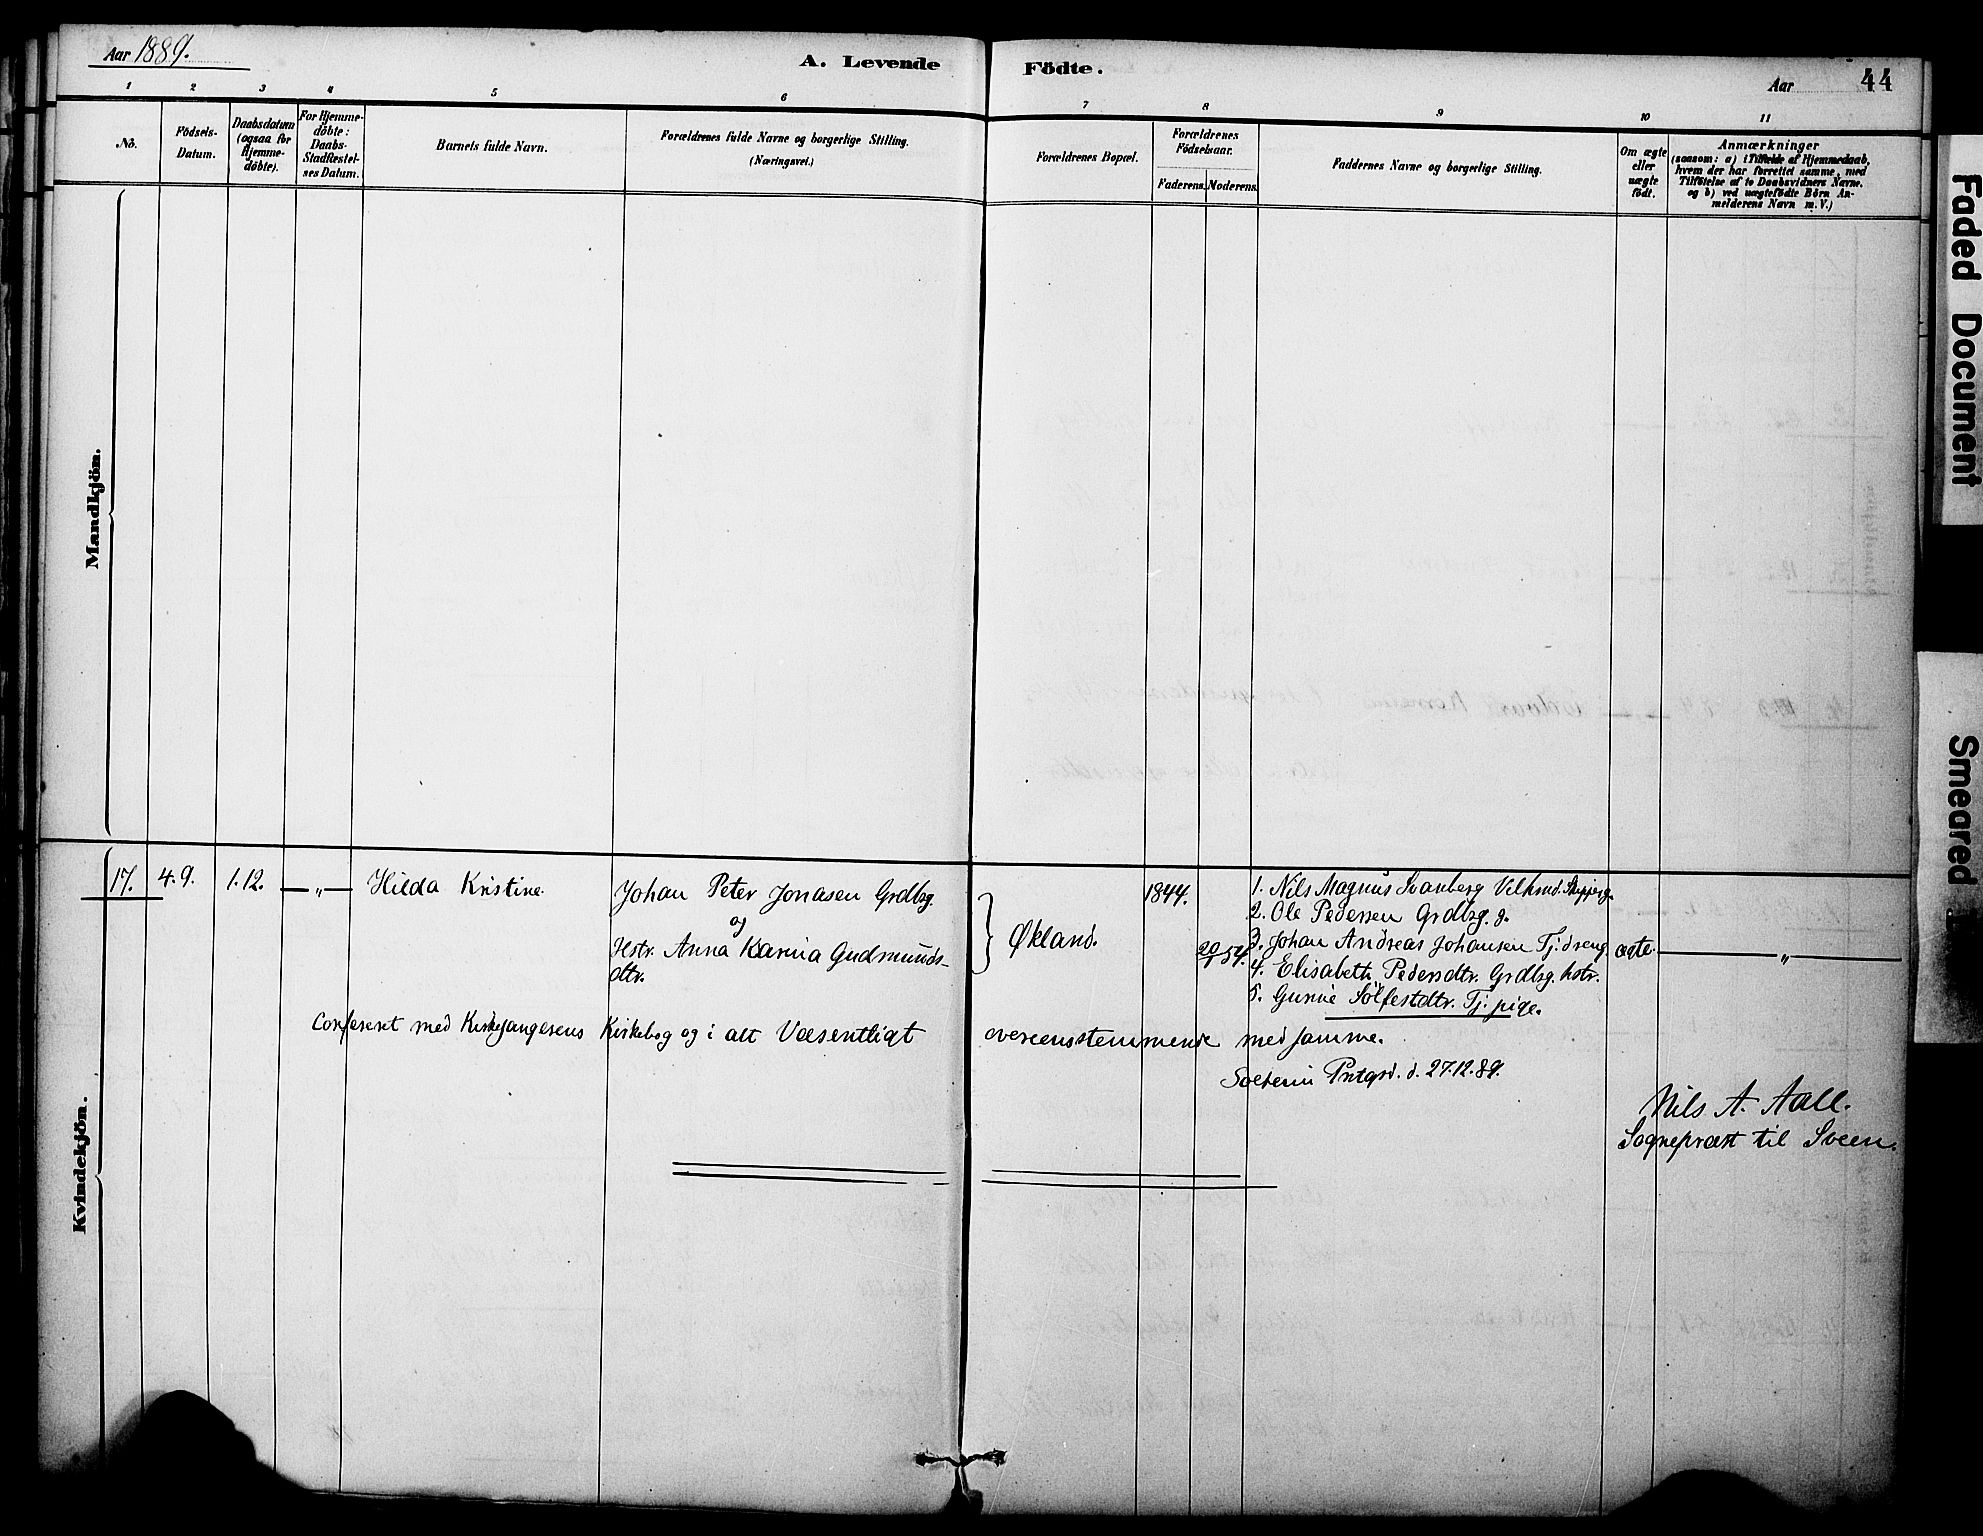 Aar 1889.
A. Levende Födte.
Aar
44
1 2 3 4 5 6 7 8 9 10 11
No.
Födsels-
Datum.
Daabsdatum
(ogsaa for
Hjemme-
döbte).
For Hjemme-
döbte:
Daabs-
Stadfæstel-
ses Datum.
Barnets fulde Navn.
Forældrenes fulde Navne og borgerlige Stilling.
(Næringsvei.)
Forældrenes Bopæl.
Forældrenes
Födselsaar.
Faderens. Moderens.
Faddernes Navne og borgerlige Stilling.
Om ægte
eller
uægte
födt.
Anmærkninger
(saasom: a) i Tilfælde af Hjemmedaab,
hvem der har forrettet samme, med
Tilföielse af to Daabsvidners Navne.
og b) ved uægtefödte Börn An-
melderens Navn m. V.)
Mandkjön.
Kvindekjön.
17. 4.9. 1.12. — „ — Hilda Kristine.
Johan Peter Jonasen Grdbrg.
og
Hstr. Anna Karina Gudmunds-
dtr.
Økland.
1844.
20/1 54.
1. Nils Magnus Svanberg
2. Ole Pedersen Grdbrg. s.
3. Johan Andreas Johansen Tj. dreng.
4. Elisabeth Pedersdtr. Grdbrg. hstr.
5. Gurine Sölfestdtr. Tj. pige.
ægte. — „ —
Confereret med Kirkesangerens Kirkebog og i alt Væsentligt overeensstemmende med samme.
Sveen Prstgrd. d. 27.12.89.
Nils A. Aall.
Sognepræst til Sveen.
Faded Document
Smeared